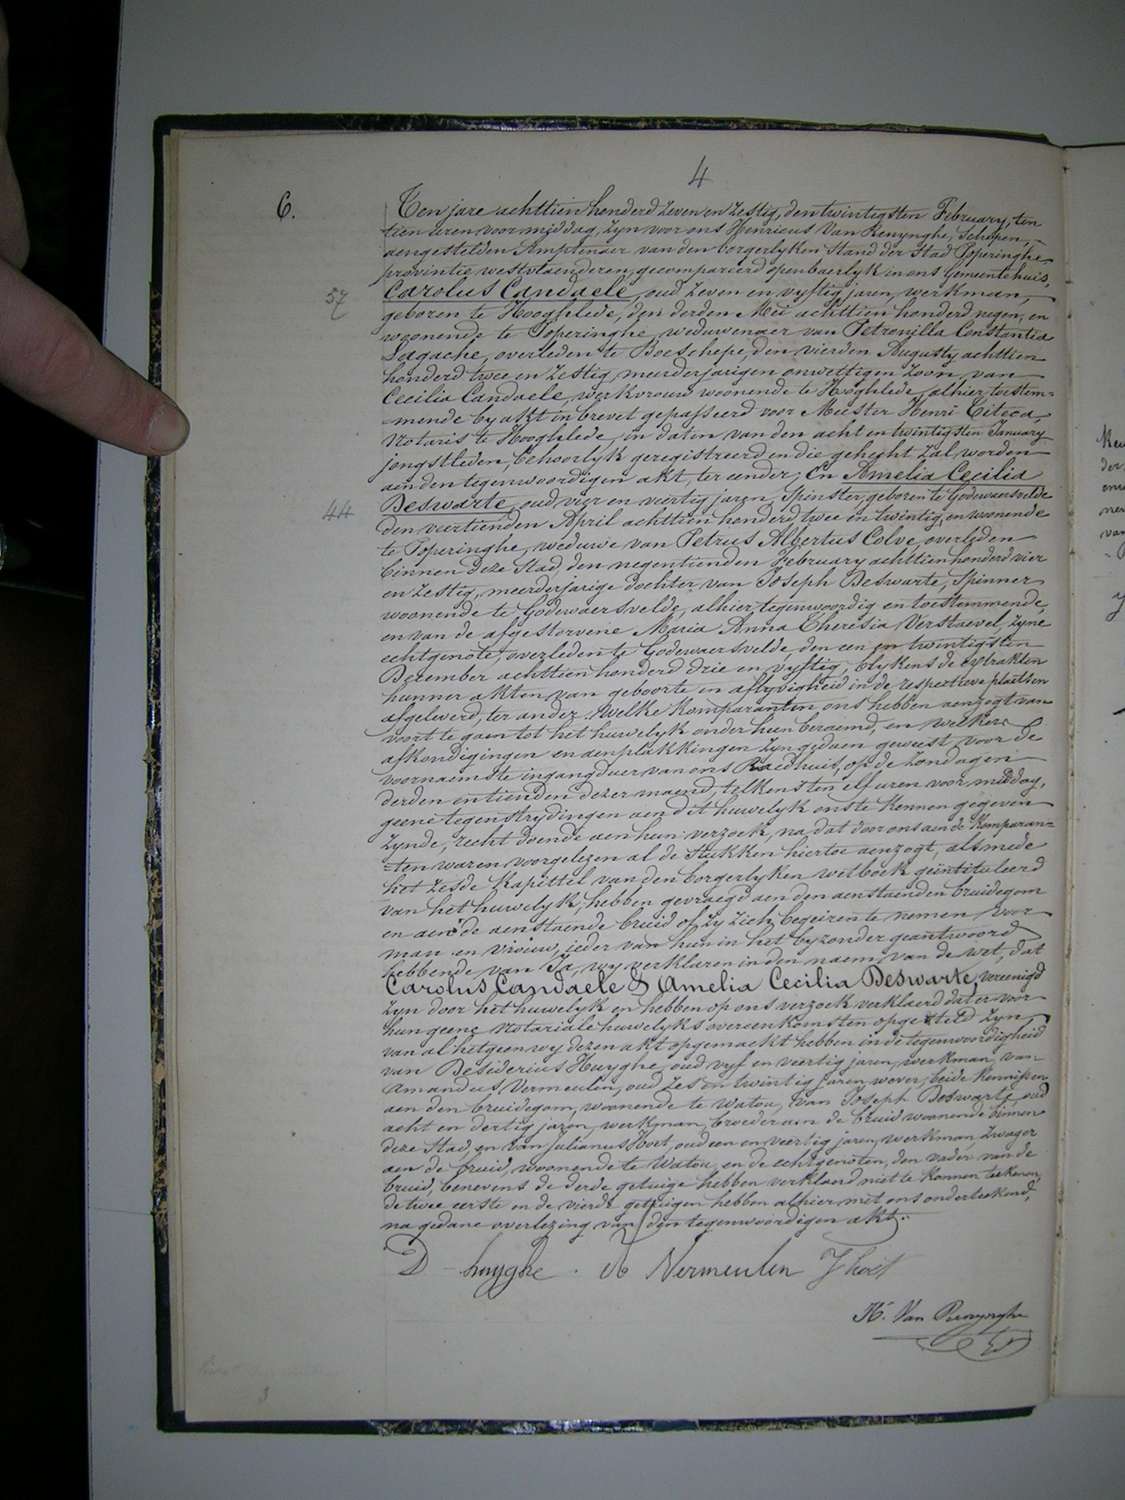 4
6.
Ten jare achttien honderd zeven en zestig, den twintigsten February, ten
tien uren voormiddag, zyn voor ons Henricus Van Renynghe, Schepen,
aengestelden Amptenaer van den borgerlyken Stand der Stad Poperinghe,
provintie westvlaenderen, gecompareerd openbaerlyk in ons Gemeentehuis,
57
Carolus Candaele, oud zeven en vyftig jaren, werkman,
geboren te Hooghlede, den derden Mei achttien honderd negen, en
woonende te Poperinghe, weduwenaer van Petronilla Constantia
Lagache, overleden te Boeschepe, den vierden Augusty achttien
honderd twee en zestig, meerderjarigen onwettigen zoon van
Cecilia Candaele, werkvrouw woonende te Hooghlede, alhier toestem-
mende by akt in brevet gepasseerd voor Meester Henri Citeca,
Notaris te Hooghlede, in daten van den acht en twintigsten January
jongstleden, behoorlyk geregistreerd en die gehecht zal worden
aen den tegenwoordigen akt, ter eender; En Amelia Cecilia
44
Deswarte, oud vier en viertig jaren, Spinster, geboren te Godewaersvelde
den viertienden April achttien honderd twee en twintig, en woonende
te Poperinghe, weduwe van Petrus Albertus Colve, overleden
binnen deze Stad, den negentienden February achttien honderd vier
en zestig, meerderjarige dochter van Joseph Deswarte, Spinner
woonende te Godewaersvelde, alhier tegenwoordig en toestemmende,
en van de afgestorvene Maria Anna Theresia Verstaevel, zyne
echtgenote, overleden te Godewaersvelde, den een en twintigsten
December achttien honderd drie en vyftig, blykens de extrakten
hunner akten van geboorte en aflyvigheid in de respective plaetsen
afgeleverd, ter ander. Welke Komparanten ons hebben aenzogt van
voort te gaen tot het huwelyk onder hun beraemd, en welkers
afkondigingen en aenplakkingen zyn gedaen geweest voor de
voornaemste ingangduer van ons Raedhuis, op de Zondagen
derden en tienden dezer maend, telkens ten elf uren voormiddag,
geene tegenstrydingen aen dit huwelyk ons te kennen gegeven
zynde, recht doende aen hun verzoek, na dat door ons aen de Komparan-
ten waren voorgelezen al de Stukken hiertoe aenzogt, alsmede
het zesde Kapittel van den borgerlyken wetboek geïntituleerd
van het huwelyk, hebben gevraegd aen den aenstaenden bruidegom
en aen de aenstaende bruid of zy zich begeiren te nemen voor
man en vrouw, ieder van hun in het byzonder geantwoord
hebbende van Ja, wy verklaren in den naem van de wet, dat
Carolus Candaele & Amelia Cecilia Deswarte, vereenigd
zyn door het huwelyk en hebben op ons verzoek verklaerd dat er voor
hun geene Notariale huwelyks overeenkomsten opgesteld zyn,
van al hetgeen wy dezen akt opgemaekt hebben in de tegenwoordigheid
van Desiderius Huyghe, oud vyf en veertig jaren, werkman van
Amandus Vermeulen, oud zes en twintig jaren, wever, beide Kennissen
aen den bruidegom, woonende te Watou, van Joseph Deswarte, oud
acht en dertig jaren, werkman, broeder aen de bruid woonende binnen
deze Stad, en van Julianus Hoet, oud een en viertig jaren, werkman zwager
aen de bruid, woonende te Watou, en de echtgenoten, den vader van de
bruid, benevens de derde getuige hebben verklaerd niet te konnen teekenen,
de twee eerste en de vierde getuigen hebben alhier met ons onderteekend,
na gedane overlezing van den tegenwoordigen akt.
D huyghe A Vermeulen J hoet
H. Van Renynghe